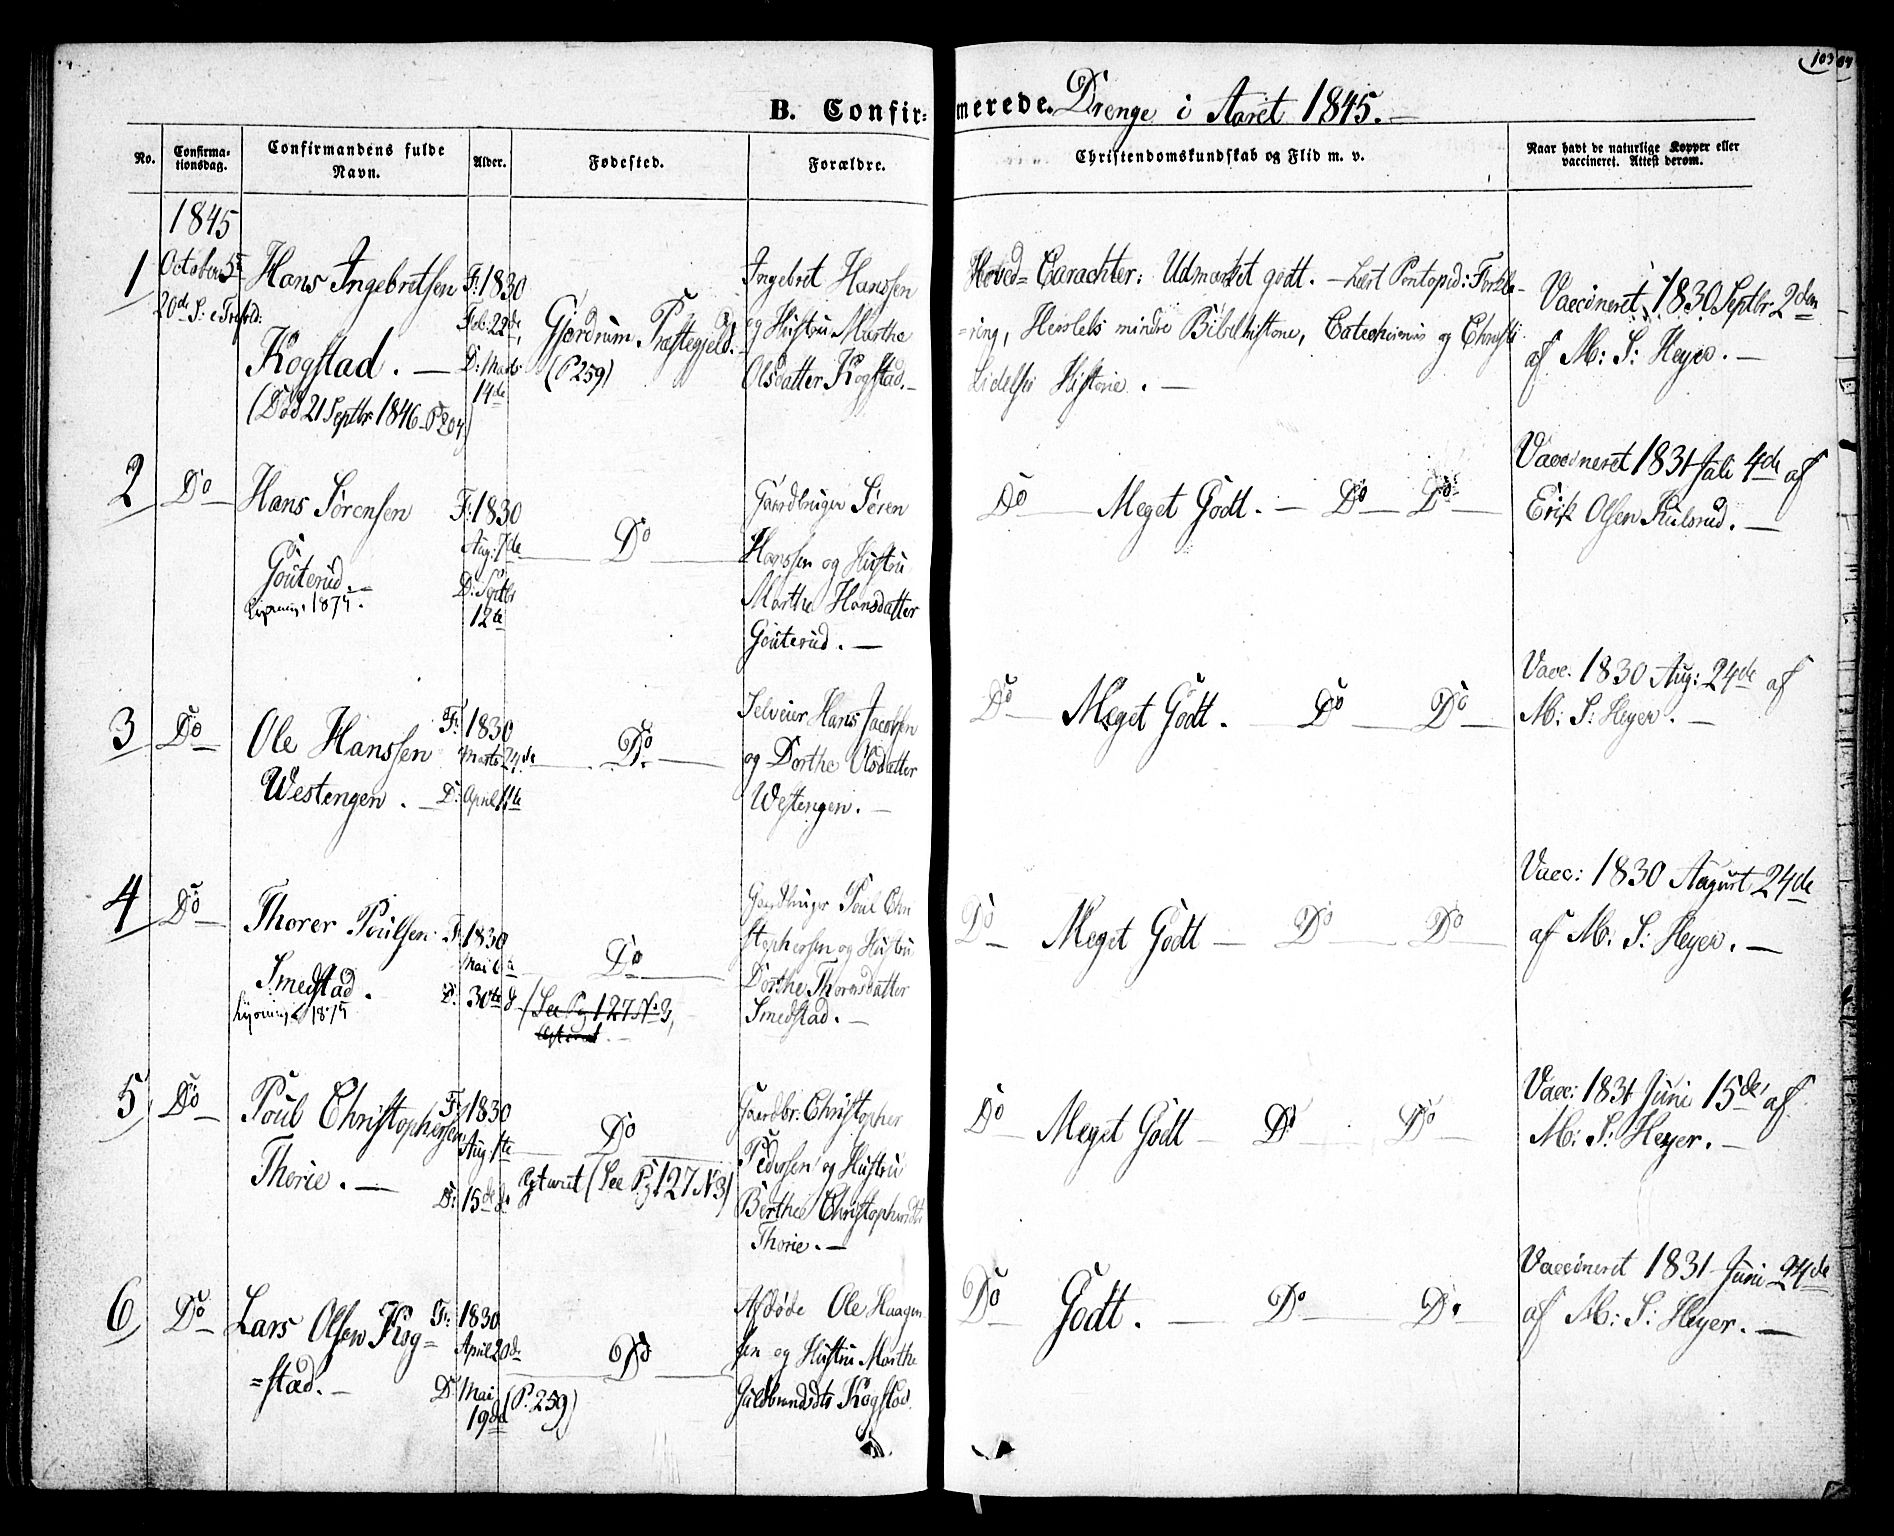 103
B. Confirmerede. Drenge i Aaret 1845. —
No.
Confirma-
tionsdag.
Confirmandens fulde
Navn.
Alder.
Fødested.
Forældre.
Christendomskundskab og Flid m. v.
Naar havt de naturlige Kopper eller
vaccineret. Attest derom.
1845
1
October 5te
20de S: e Trefold:
Hans Ingebretsen
Kogstad. —
(Død 21 Septbr 1846 P 204)
F: 1830
Feb: 22de,
D: Marts
14de
Gjerdrum Præstegjeld.
(P 259)
Ingebret Hanssen
og Hustru Marthe
Olsdatter Kogstad. —
Hoved= Carachter: Udmærket godt. — Lært Pontopid: Forkla-
=ring, Herslebs mindre Bibelhistorie, Catechismus og Christi
Lidelses Historie. —
Vaccineret 1830 Septbr 2den
af M: S: Heyer. —
2
Do
Hans Sørensen
Gouterud. —
1875.
F: 1830
Aug: 7de
D: Sptbr
12te
Do
Gaardbruger Søren
Hanssen og Hustru
Marthe Hansdatter
Gouterud. —
Do — Meget Godt. — Do — Do
Vaccineret 1831 Juli 4de af
Erik Olsen Kulsrud. —
3
Do
Ole Hanssen
Westengen. —
F: 1830
Marts 24de
D: April 11te
Do
Selveier Hans Jacobsen
og Dorthe Olsdatter
Westengen. —
Do — Meget Godt. — Do — Do
Vacc. 1830 Aug: 24de af
M: S: Heyer. —
4
Do
Thorer Poulsen
Smedstad.
1875
F: 1830
Mai 6te
D: 30te d
Do
(See Pg 127 No 3,
Gaardbruger Poul Chri
stophersen og Hustru
Dorthe Thorersdatter
Smedstad. —
Do — Meget Godt — Do — Do
Vacc: 1830 August 24de
af M: S: Heyer. —
5
Do
Poul Christophersen
Thorie. —
F: 1830
Aug 1te
D: 15de do
Do
(See Pg 127 N 3)
Gaardbr: Christopher
Pedersen og Hustru
Berthe Christophersdtr
Thorie. —
Do — Meget Godt — Do — Do
Vacc: 1831 Juni 15de af
M: S: Heyer. —
6
Do
Lars Olsen Kog=
=stad. —
F: 1830
April 20de
D: Mai
19de
Do
(P. 259)
Afdøde Ole Haagen
sen og Hustru Marthe
Guldbrandsdtr Kogstad.
Do — Godt. — Do — Do
Vaccineret 1831 Juni 24de
af M: S: Heyer. —